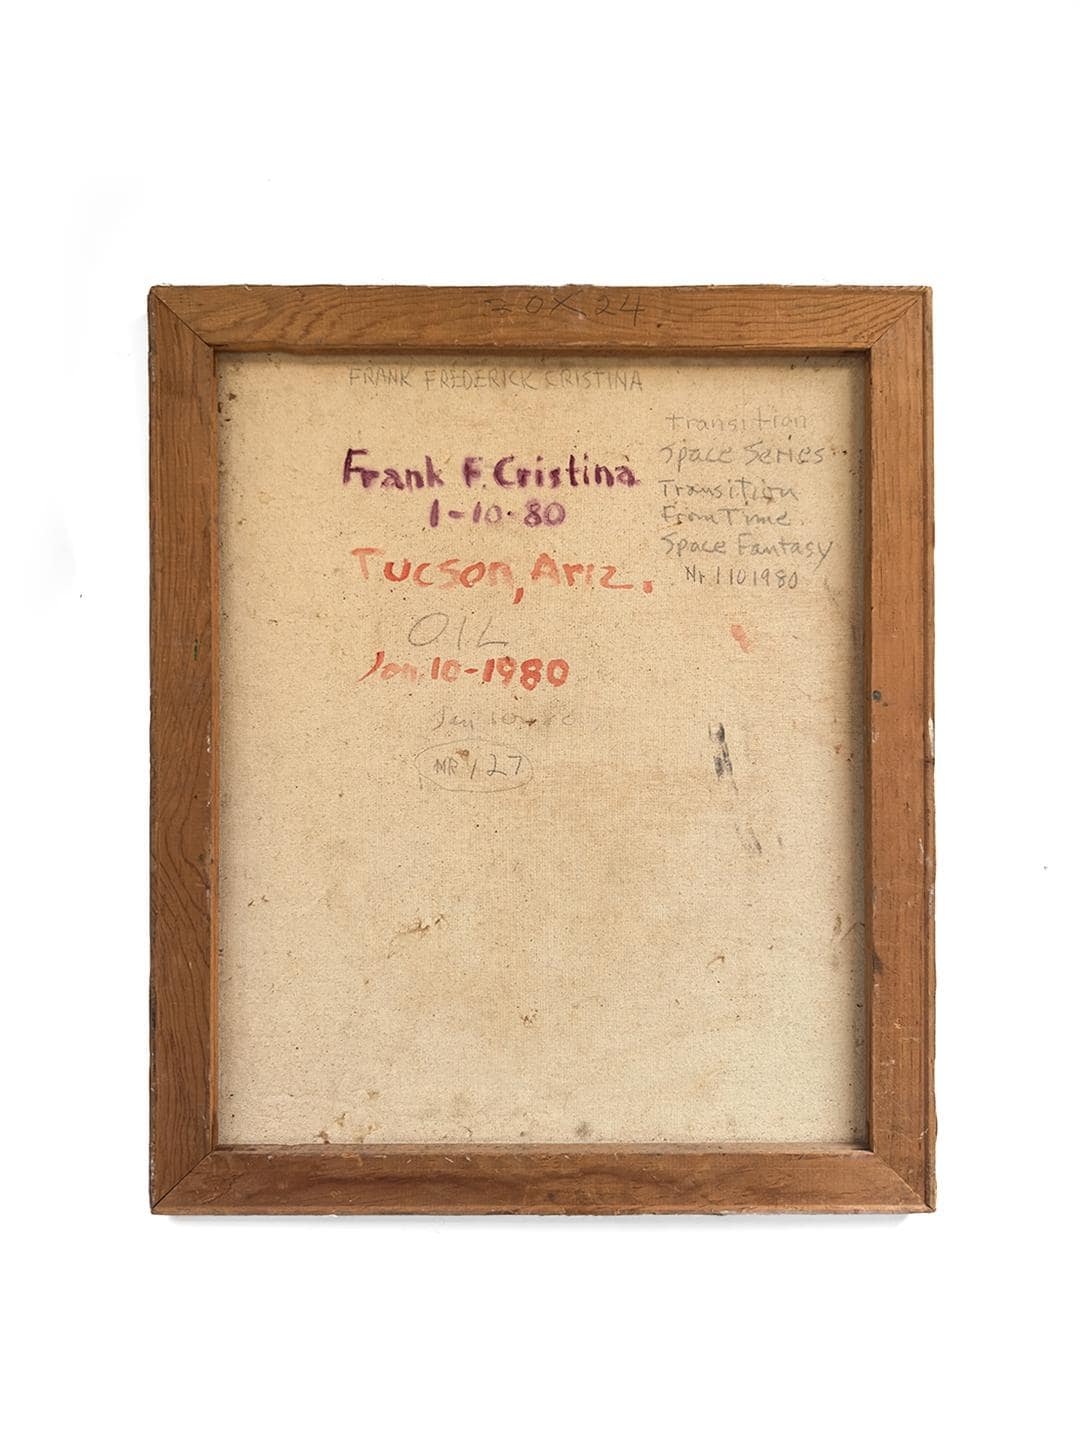 20X24
FRANK FREDERICK CRISTINA
Transition
Space Series
Transition
From Time
Space Fantasy
Nr 1101980
Frank F. Cristina
1-10-80
Tucson, Ariz.
OIL
Jan. 10-1980
Jan 10
MR 127